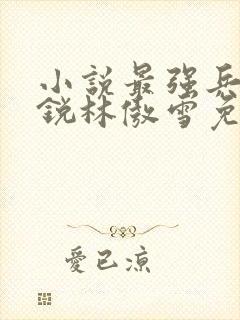 小說最強兵
銳林傲雪免
愛已涼